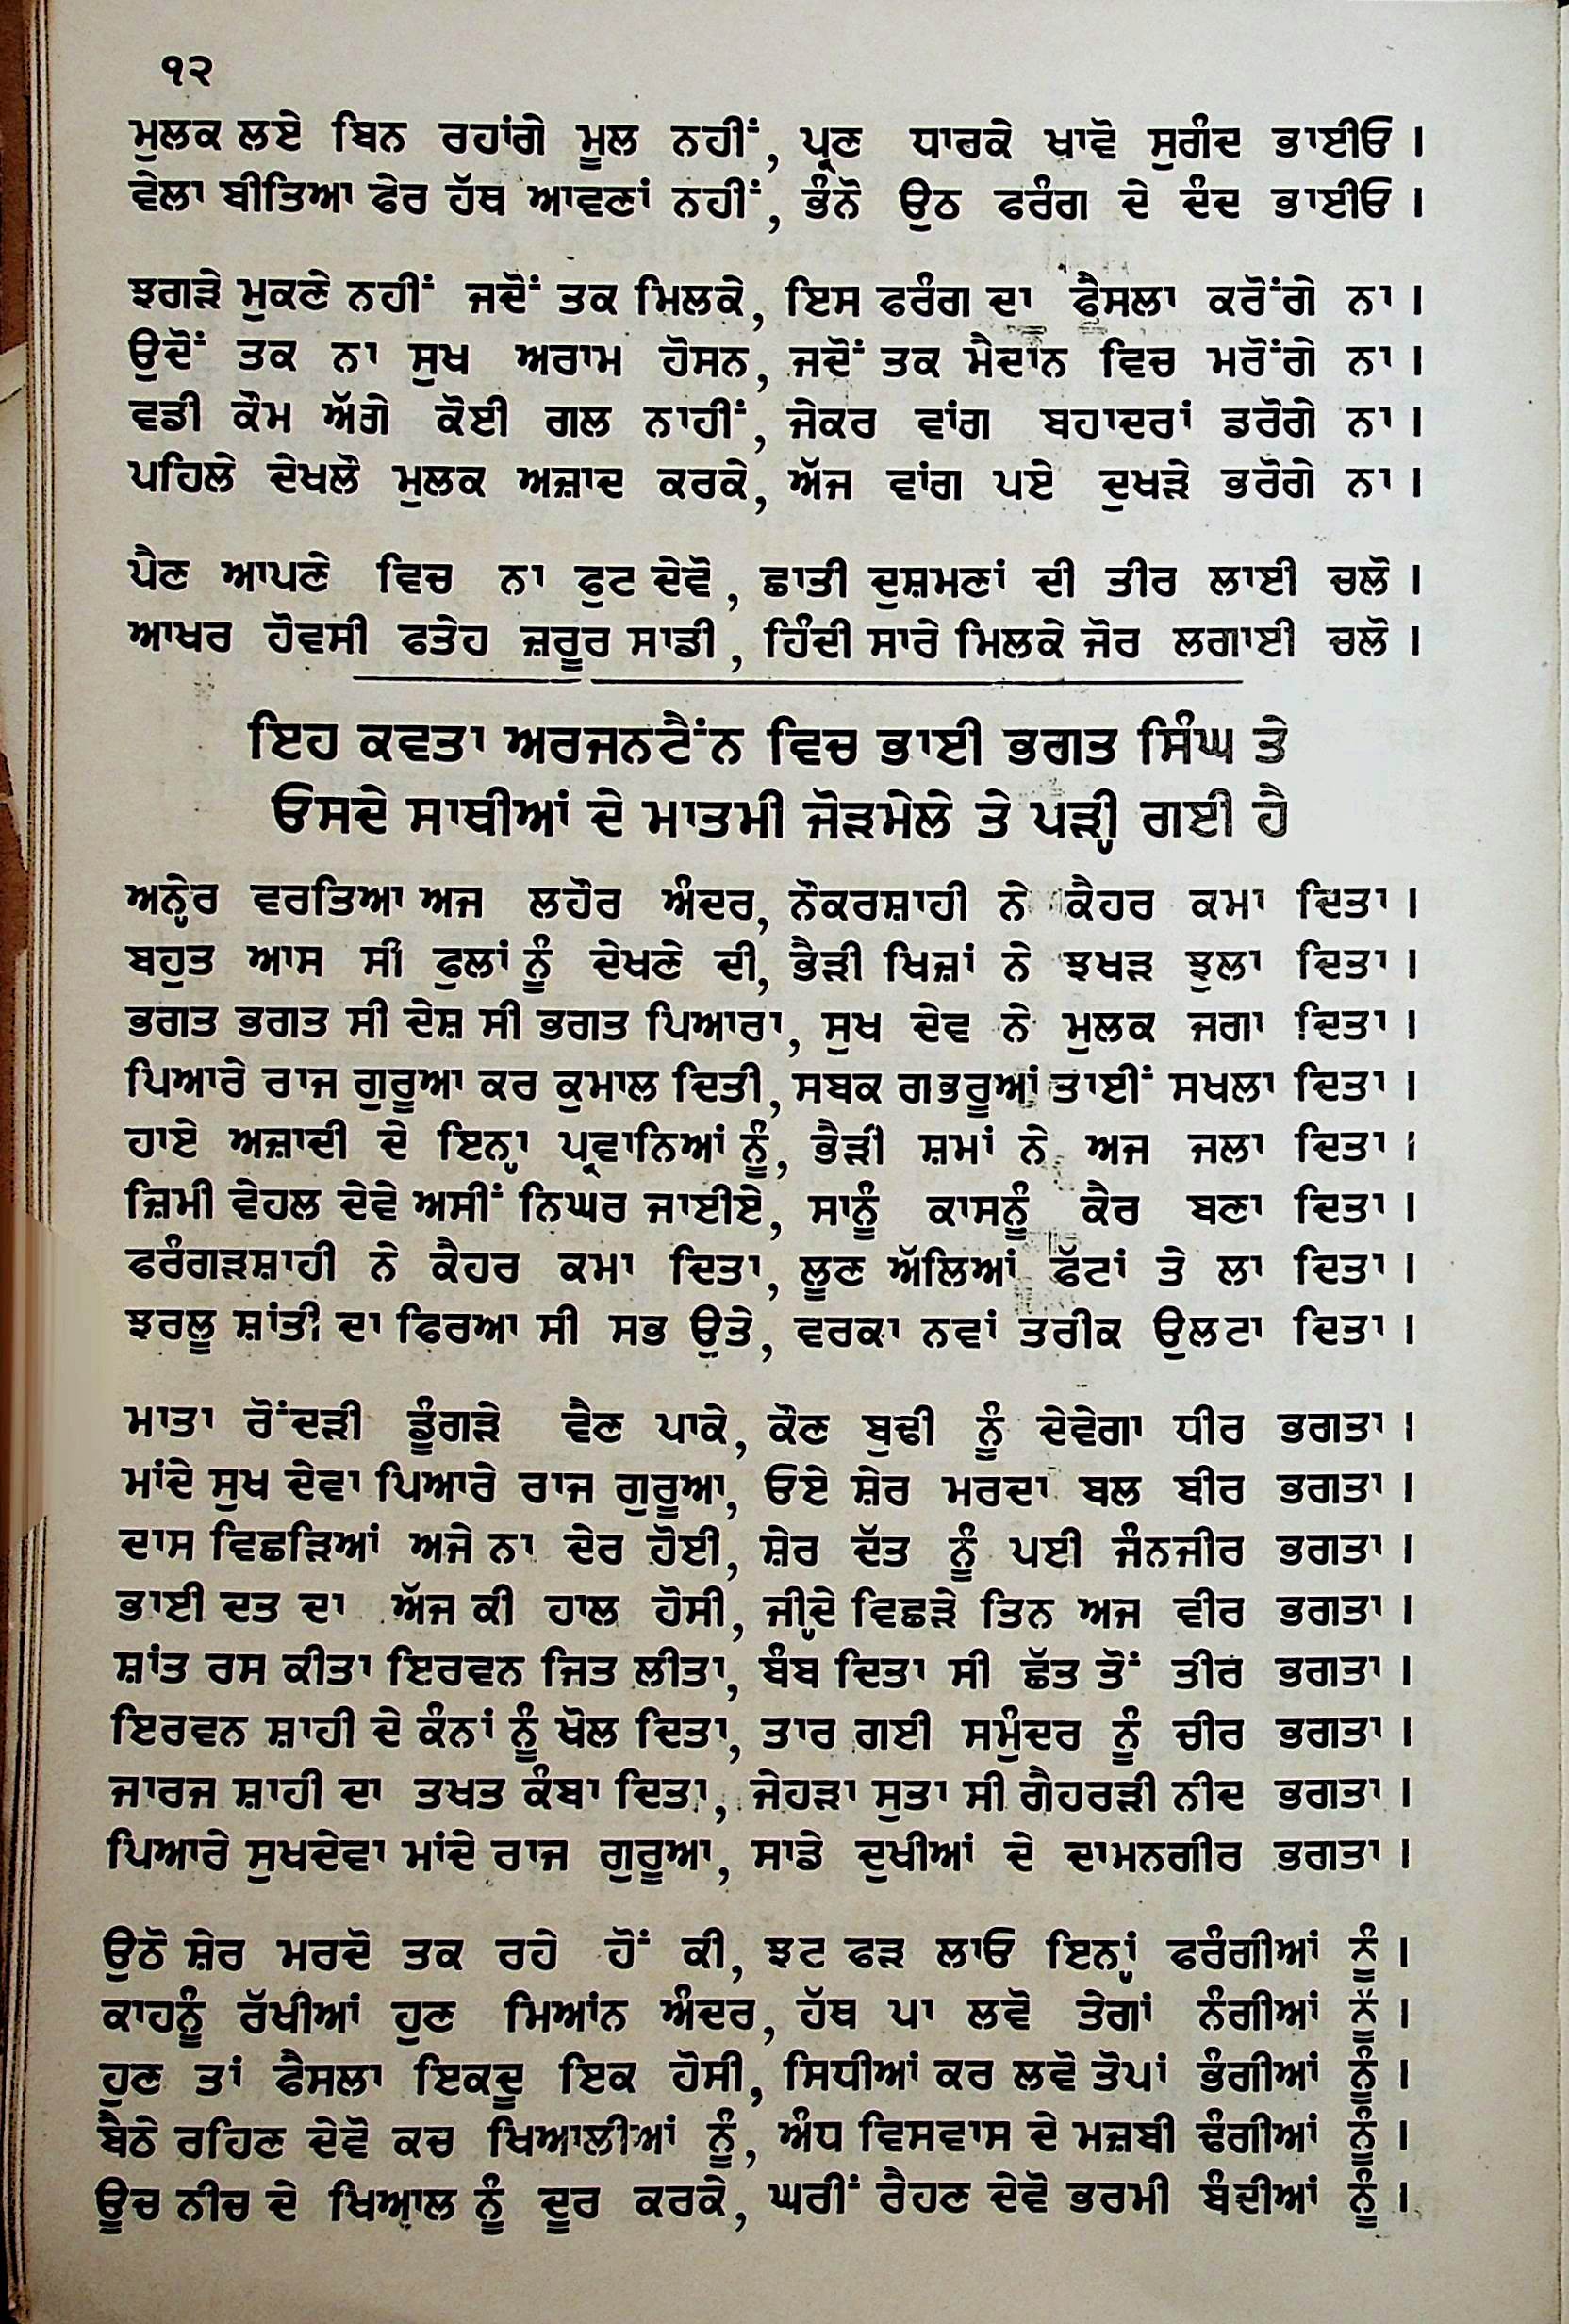 ੧੨
ਮੁਲਕ ਲਏ ਬਿਨ ਰਹਾਂਗੇ ਮੂਲ ਨਹੀਂ, ਪ੍ਰਣ ਧਾਰਕੇ ਖਾਵੋ ਸੁਗੰਦ ਭਾਈਓ ।
ਵੇਲਾ ਬੀਤਿਆ ਫੇਰ ਹੱਥ ਆਵਣਾਂ ਨਹੀਂ, ਭੰਨੋ ਉਠ ਫਰੰਗ ਦੇ ਦੰਦ ਭਾਈਓ ।
ਝਗੜੇ ਮੁਕਣੇ ਨਹੀਂ ਜਦੋਂ ਤਕ ਮਿਲਕੇ, ਇਸ ਫਰੰਗ ਦਾ ਫੈਸਲਾ ਕਰੋਂਗੇ ਨਾ ।
ਉਦੋਂ ਤਕ ਨਾ ਸੁਖ ਅਰਾਮ ਹੋਸਨ, ਜਦੋਂ ਤਕ ਮੈਦਾਨ ਵਿਚ ਮਰੋਂਗੇ ਨਾ ।
ਵਡੀ ਕੌਮ ਅੱਗੇ ਕੋਈ ਗਲ ਨਾਹੀਂ, ਜੇਕਰ ਵਾਂਗ ਬਹਾਦਰਾਂ ਡਰੋਗੇ ਨਾ ।
ਪਹਿਲੇ ਦੇਖਲੌ ਮੁਲਕ ਅਜ਼ਾਦ ਕਰਕੇ, ਅੱਜ ਵਾਂਗ ਪਏ ਦੁਖੜੇ ਭਰੋਗੇ ਨਾ ।
ਪੈਣ ਆਪਣੇ ਵਿਚ ਨਾ ਫੁਟ ਦੇਵੋ, ਛਾਤੀ ਦੁਸ਼ਮਣਾਂ ਦੀ ਤੀਰ ਲਾਈ ਚਲੋ ।
ਆਖਰ ਹੋਵਸੀ ਫਤੇਹ ਜ਼ਰੂਰ ਸਾਡੀ, ਹਿੰਦੀ ਸਾਰੇ ਮਿਲਕੇ ਜੋਰ ਲਗਾਈ ਚਲੋ ।
ਇਹ ਕਵਤਾ ਅਰਜਨਟੈਂਨ ਵਿਚ ਭਾਈ ਭਗਤ ਸਿੰਘ ਤੇ
ਓਸਦੇ ਸਾਥੀਆਂ ਦੇ ਮਾਤਮੀ ਜੋੜਮੇਲੇ ਤੇ ਪੜ੍ਹੀ ਗਈ ਹੈ
ਅਨ੍ਹੇਰ ਵਰਤਿਆ ਅਜ ਲਹੌਰ ਅੰਦਰ, ਨੌਕਰਸ਼ਾਹੀ ਨੇ ਕੈਹਰ ਕਮਾ ਦਿਤਾ ।
ਬਹੁਤ ਆਸ ਸੀ ਫੁਲਾਂ ਨੂੰ ਦੇਖਣੇ ਦੀ, ਭੈੜੀ ਖਿਜ਼ਾਂ ਨੇ ਝਖੜ ਝੁਲਾ ਦਿਤਾ ।
ਭਗਤ ਭਗਤ ਸੀ ਦੇਸ਼ ਸੀ ਭਗਤ ਪਿਆਰਾ, ਸੁਖ ਦੇਵ ਨੇ ਮੁਲਕ ਜਗਾ ਦਿਤਾ ।
ਪਿਆਰੇ ਰਾਜ ਗੁਰੂਆ ਕਰ ਕੁਮਾਲ ਦਿਤੀ, ਸਬਕ ਗਭਰੂਆਂ ਤਾਈਂ ਸਖਲਾ ਦਿਤਾ ।
ਹਾਏ ਅਜ਼ਾਦੀ ਦੇ ਇਨ੍ਹਾ ਪ੍ਰਵਾਨਿਆਂ ਨੂੰ, ਭੈੜੀ ਸ਼ਮਾਂ ਨੇ ਅਜ ਜਲਾ ਦਿਤਾ ।
ਜ਼ਿਮੀ ਵੇਹਲ ਦੇਵੇ ਅਸੀਂ ਨਿਘਰ ਜਾਈਏ, ਸਾਨੂੰ ਕਾਸਨੂੰ ਕੈਰ ਬਣਾ ਦਿਤਾ ।
ਫਰੰਗੜਸ਼ਾਹੀ ਨੇ ਕੈਹਰ ਕਮਾ ਦਿਤਾ, ਲੂਣ ਅੱਲਿਆਂ ਫੱਟਾਂ ਤੇ ਲਾ ਦਿਤਾ ।
ਝਰਲੂ ਸ਼ਾਂਤੀ ਦਾ ਫਿਰਆ ਸੀ ਸਭ ਉਤੇ, ਵਰਕਾ ਨਵਾਂ ਤਰੀਕ ਉਲਟਾ ਦਿਤਾ ।
ਮਾਤਾ ਰੋਂਦੜੀ ਡੂੰਗੜੇ ਵੈਣ ਪਾਕੇ, ਕੌਣ ਬੁਢੀ ਨੂੰ ਦੇਵੇਗਾ ਧੀਰ ਭਗਤਾ ।
ਮਾਂਦੇ ਸੁਖ ਦੇਵਾ ਪਿਆਰੇ ਰਾਜ ਗੁਰੂਆ, ਓਏ ਸ਼ੇਰ ਮਰਦਾ ਬਲ ਬੀਰ ਭਗਤਾ ।
ਦਾਸ ਵਿਛੜਿਆਂ ਅਜੇ ਨਾ ਦੇਰ ਹੋਈ, ਸ਼ੇਰ ਦੱਤ ਨੂੰ ਪਈ ਜੰਨਜੀਰ ਭਗਤਾ ।
ਭਾਈ ਦਤ ਦਾ ਅੱਜ ਕੀ ਹਾਲ ਹੋਸੀ, ਜੀਂਦੇ ਵਿਛੜੇ ਤਿਨ ਅਜ ਵੀਰ ਭਗਤਾ ।
ਸ਼ਾਂਤ ਰਸ ਕੀਤਾ ਇਰਵਨ ਜਿਤ ਲੀਤਾ, ਬੰਬ ਦਿਤਾ ਸੀ ਛੱਤ ਤੋਂ ਤੀਰ ਭਗਤਾ ।
ਇਰਵਨ ਸ਼ਾਹੀ ਦੇ ਕੰਨਾਂ ਨੂੰ ਖੋਲ ਦਿਤਾ, ਤਾਰ ਗਈ ਸਮੁੰਦਰ ਨੂੰ ਚੀਰ ਭਗਤਾ ।
ਜਾਰਜ ਸ਼ਾਹੀ ਦਾ ਤਖਤ ਕੰਬਾ ਦਿਤਾ, ਜੇਹੜਾ ਸੁਤਾ ਸੀ ਗੈਹਰੜੀ ਨੀਦ ਭਗਤਾ ।
ਪਿਆਰੇ ਸੁਖਦੇਵਾ ਮਾਂਦੇ ਰਾਜ ਗੁਰੂਆ, ਸਾਡੇ ਦੁਖੀਆਂ ਦੇ ਦਾਮਨਗੀਰ ਭਗਤਾ ।
ਉਠੋ ਸ਼ੇਰ ਮਰਦੋ ਤਕ ਰਹੇ ਹੋਂ ਕੀ, ਝਟ ਫੜ ਲਾਓ ਇਨ੍ਹਾਂ ਫਰੰਗੀਆਂ ਨੂੰ ।
ਕਾਹਨੂੰ ਰੱਖੀਆਂ ਹੁਣ ਮਿਆਂਨ ਅੰਦਰ, ਹੱਥ ਪਾ ਲਵੋ ਤੇਗਾਂ ਨੰਗੀਆਂ ਨੂੰ ।
ਹੁਣ ਤਾਂ ਫੈਸਲਾ ਇਕਦੂ ਇਕ ਹੋਸੀ, ਸਿਧੀਆਂ ਕਰ ਲਵੋ ਤੋਪਾਂ ਭੰਗੀਆਂ ਨੂੰ ।
ਬੈਠੇ ਰਹਿਣ ਦੇਵੋ ਕਚ ਖਿਆਲੀਆਂ ਨੂੰ, ਅੰਧ ਵਿਸਵਾਸ ਦੇ ਮਜ਼ਬੀ ਢੰਗੀਆਂ ਨੂੰ ।
ਊਚ ਨੀਚ ਦੇ ਖਿਆਲ ਨੂੰ ਦੂਰ ਕਰਕੇ, ਘਰੀਂ ਰੈਹਣ ਦੇਵੋ ਭਰਮੀ ਬੰਦੀਆਂ ਨੂੰ ।